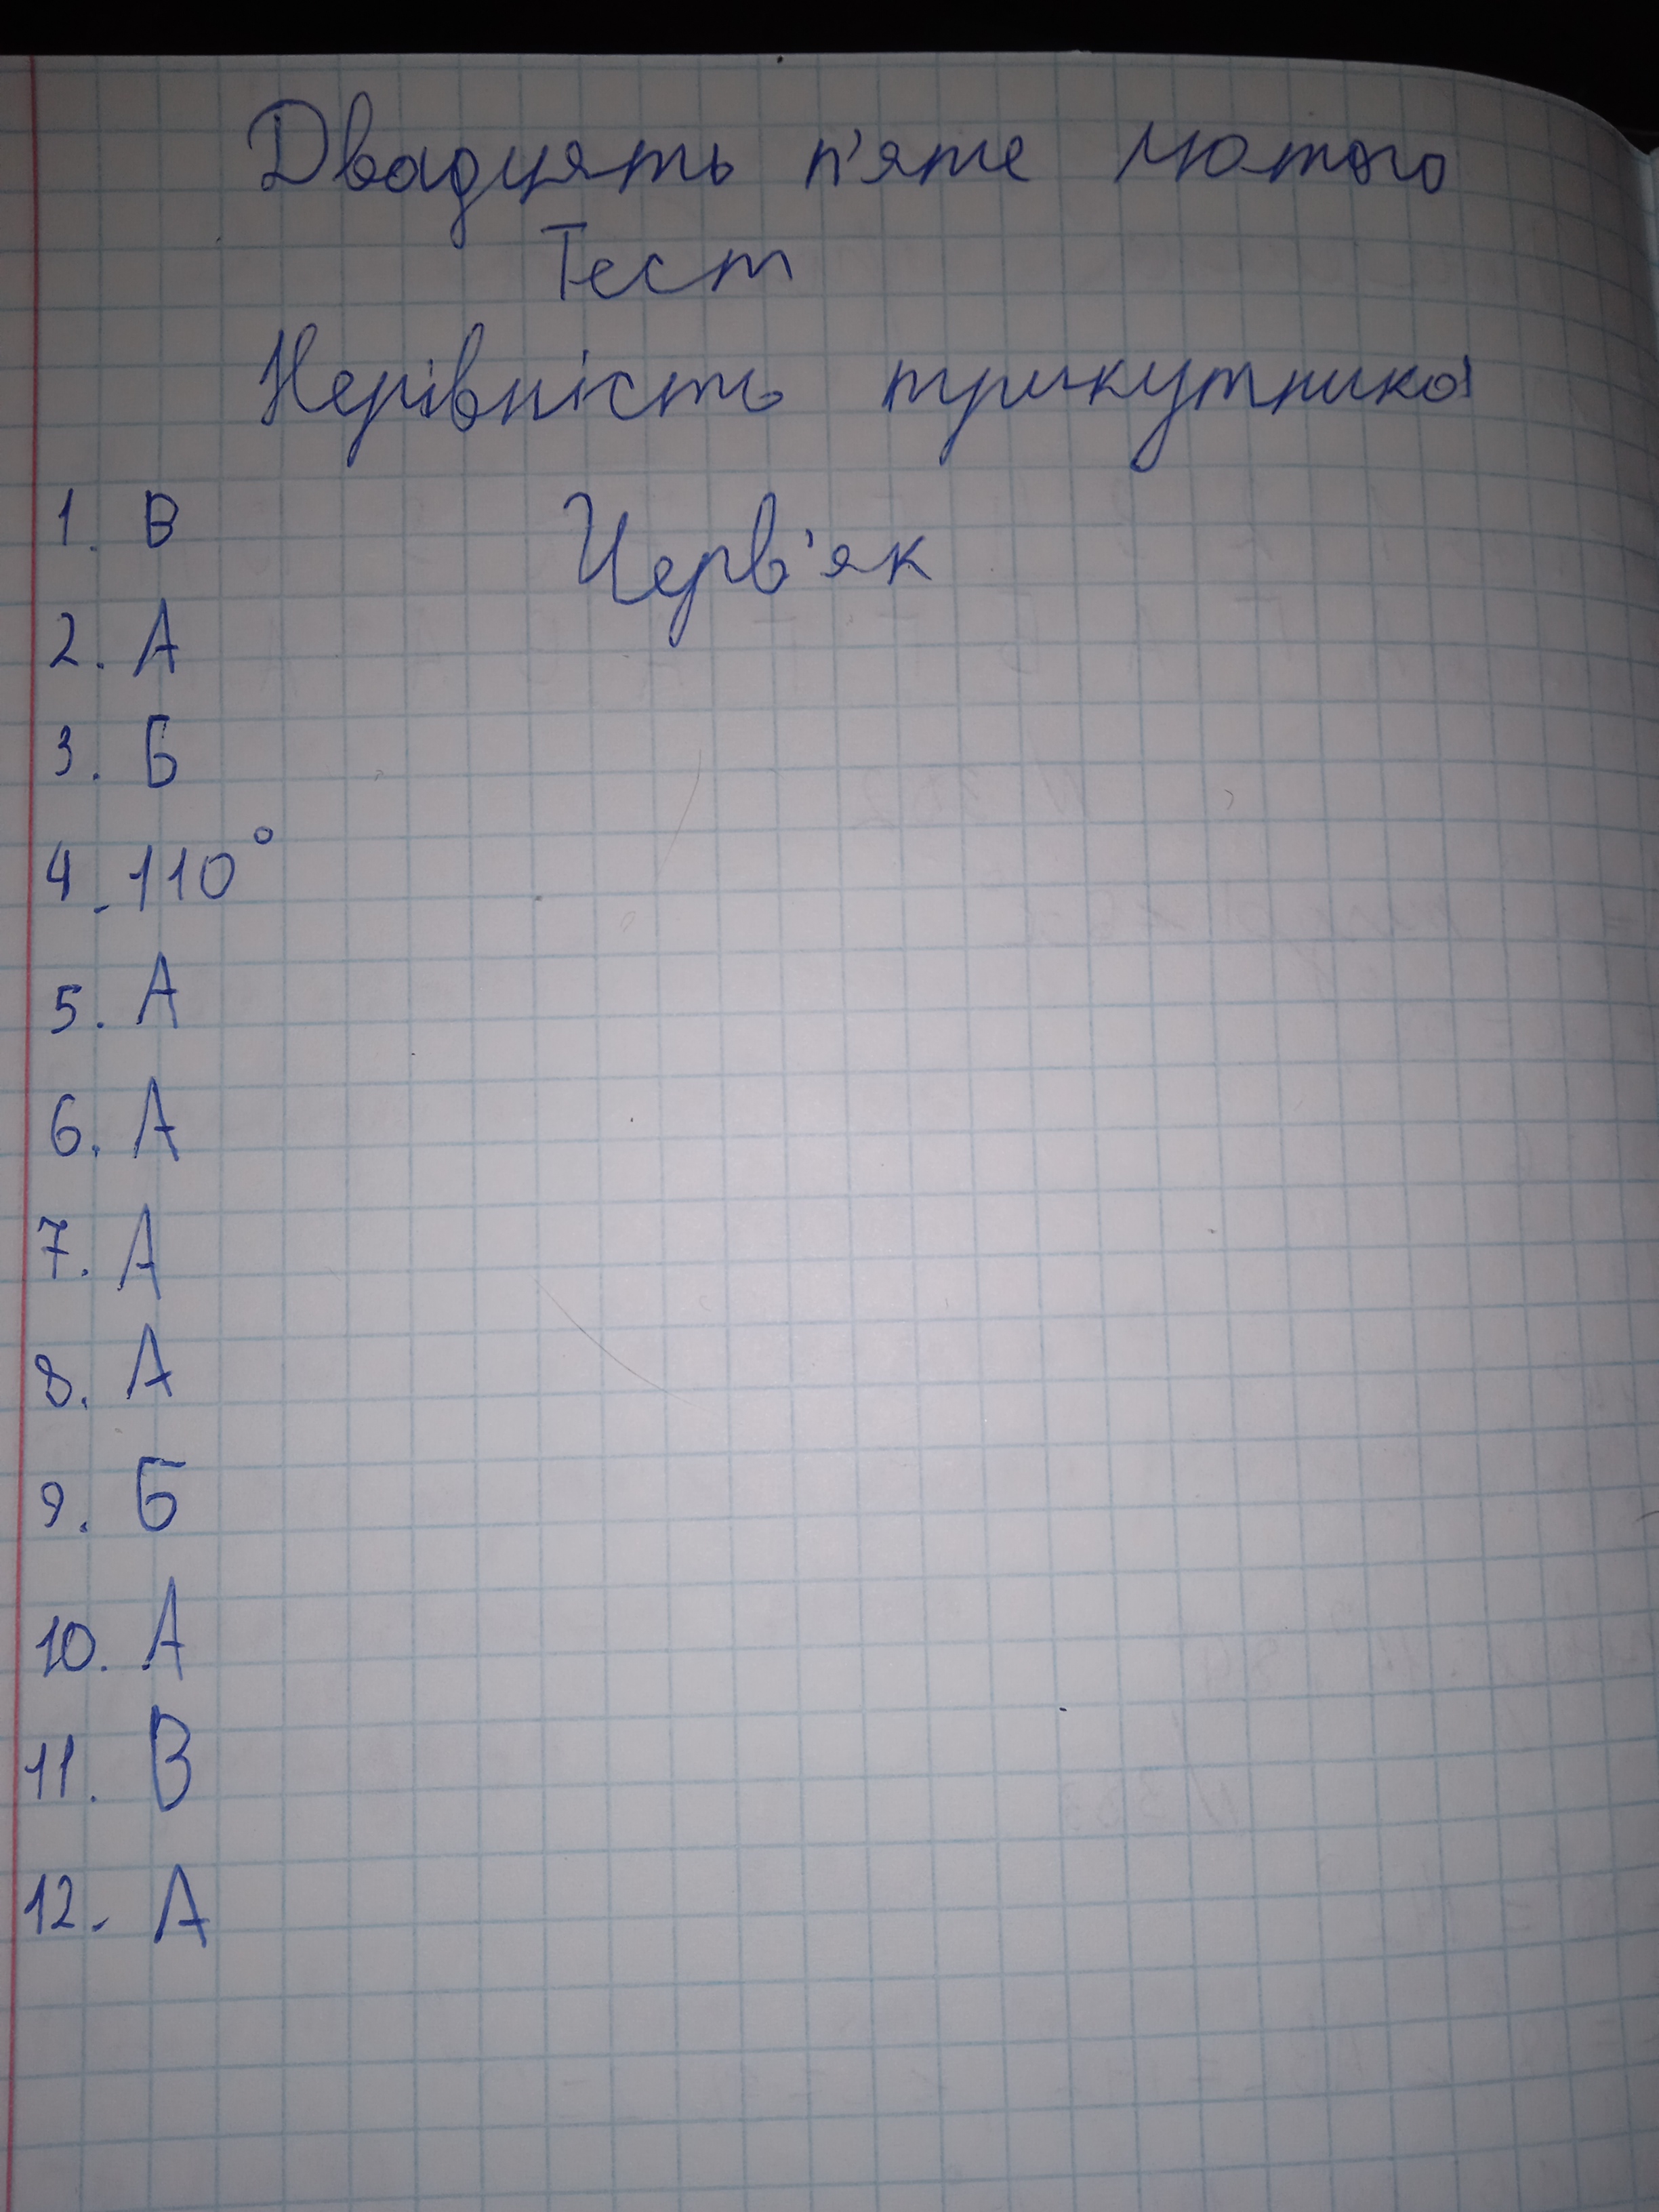 Двадцять п'яте лютого
Тест
Нерівність трикутника
1. В
Черв'як
2. А
3. Б
4. 110°
5. А
6. А
7. А
8. А
9. Б
10. А
11. В
12. А